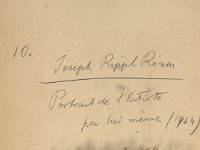 10.
Joseph Rippl Rónai
Portrait de l'Artiste
par lui même (1924)